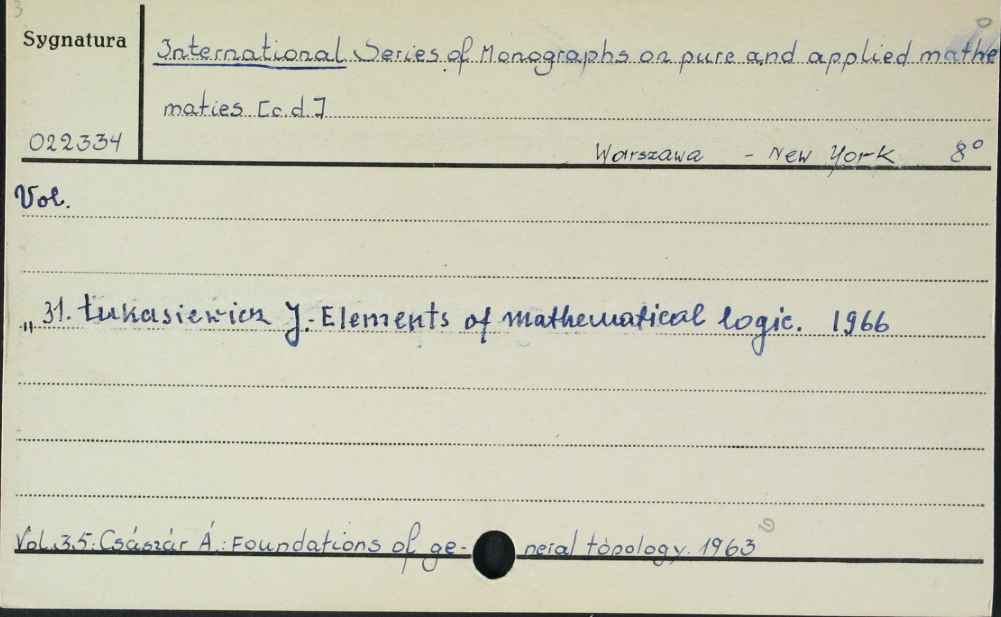 3
Sygnatura
International Series of Monographs on pure and applied mathe
maties [c.d.]
022334
Warszawa - New York 8°
Vol.
" 31. Łukasiewicz J.- Elements of mathematical logic. 1966
Vol.35: Császár Á.: Foundations of ge- neral topology. 1963